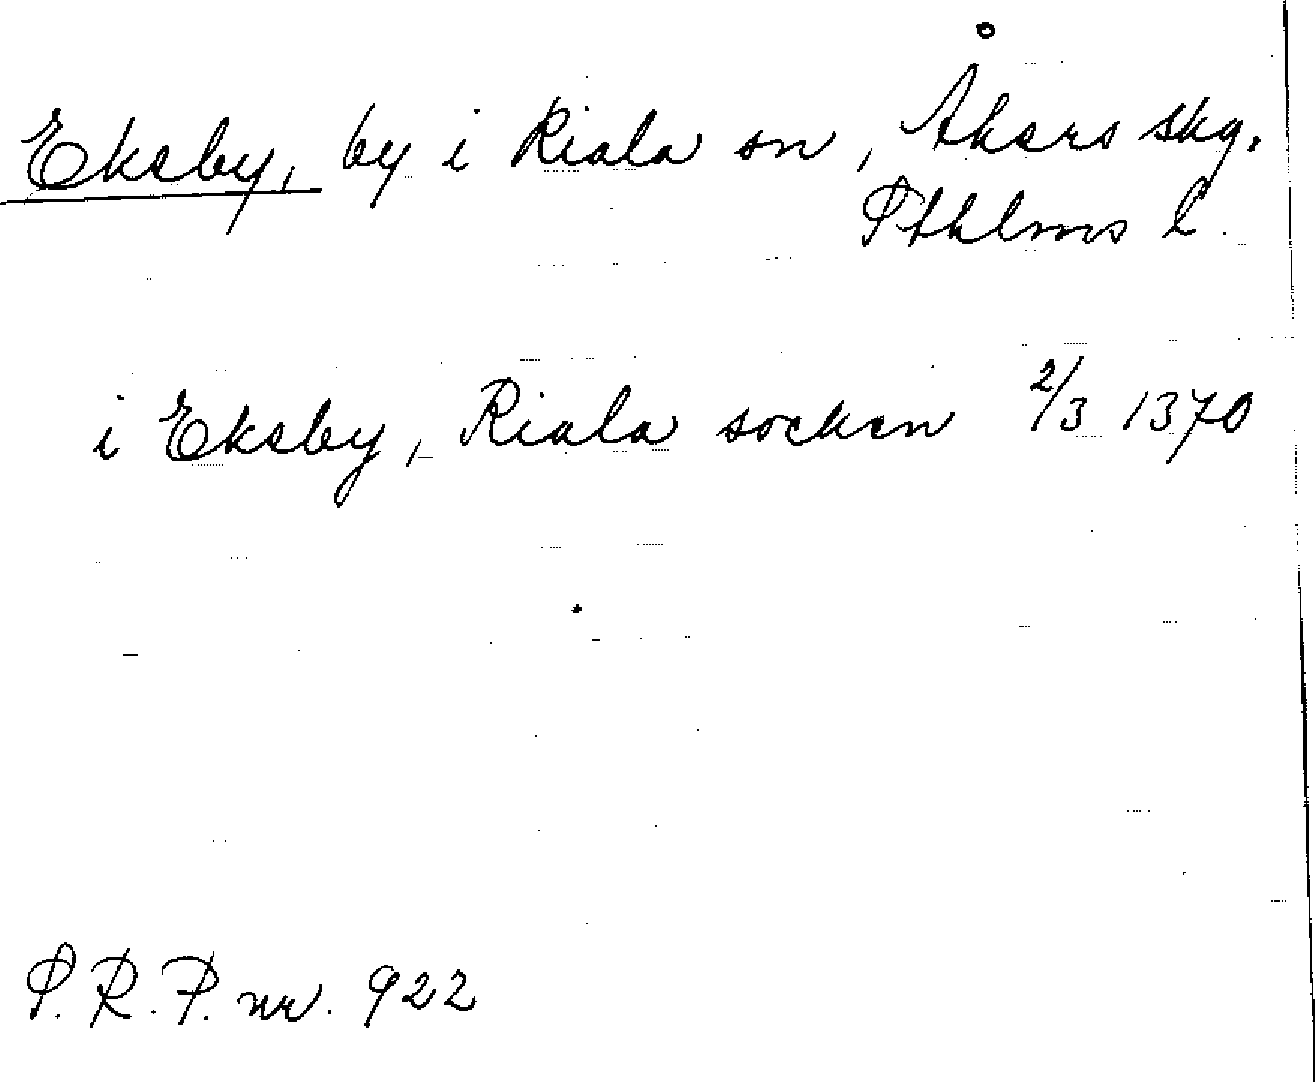 Eksby, by i Riala sn, Åkers skg.
Sthlms l.
i Eksby, Riala socken 2/3 1370
S.R.P. nr. 922